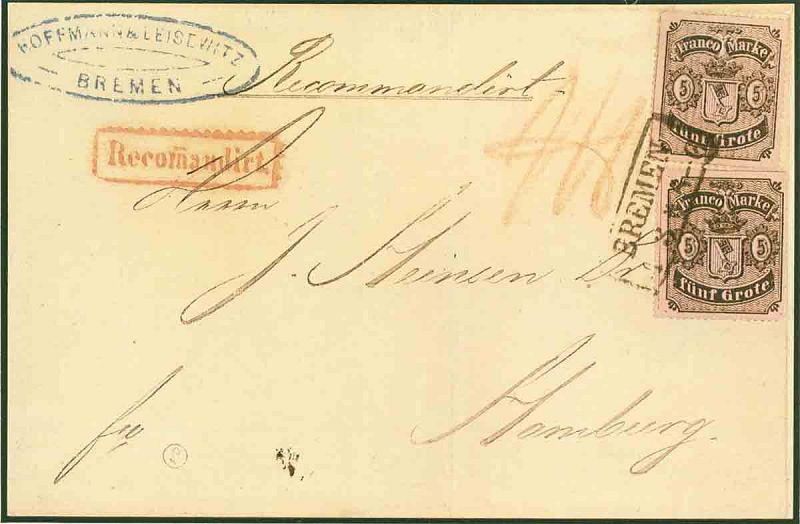 HOFFMANN & LEISEWITZ
BREMEN
Recommandirt
Recomandirt
Herrn
J. Heinsen Dr
Hamburg.
fro
Franco Marke
5 5
fünf Grote
BREMEN
Franco Marke
5 5
fünf Grote